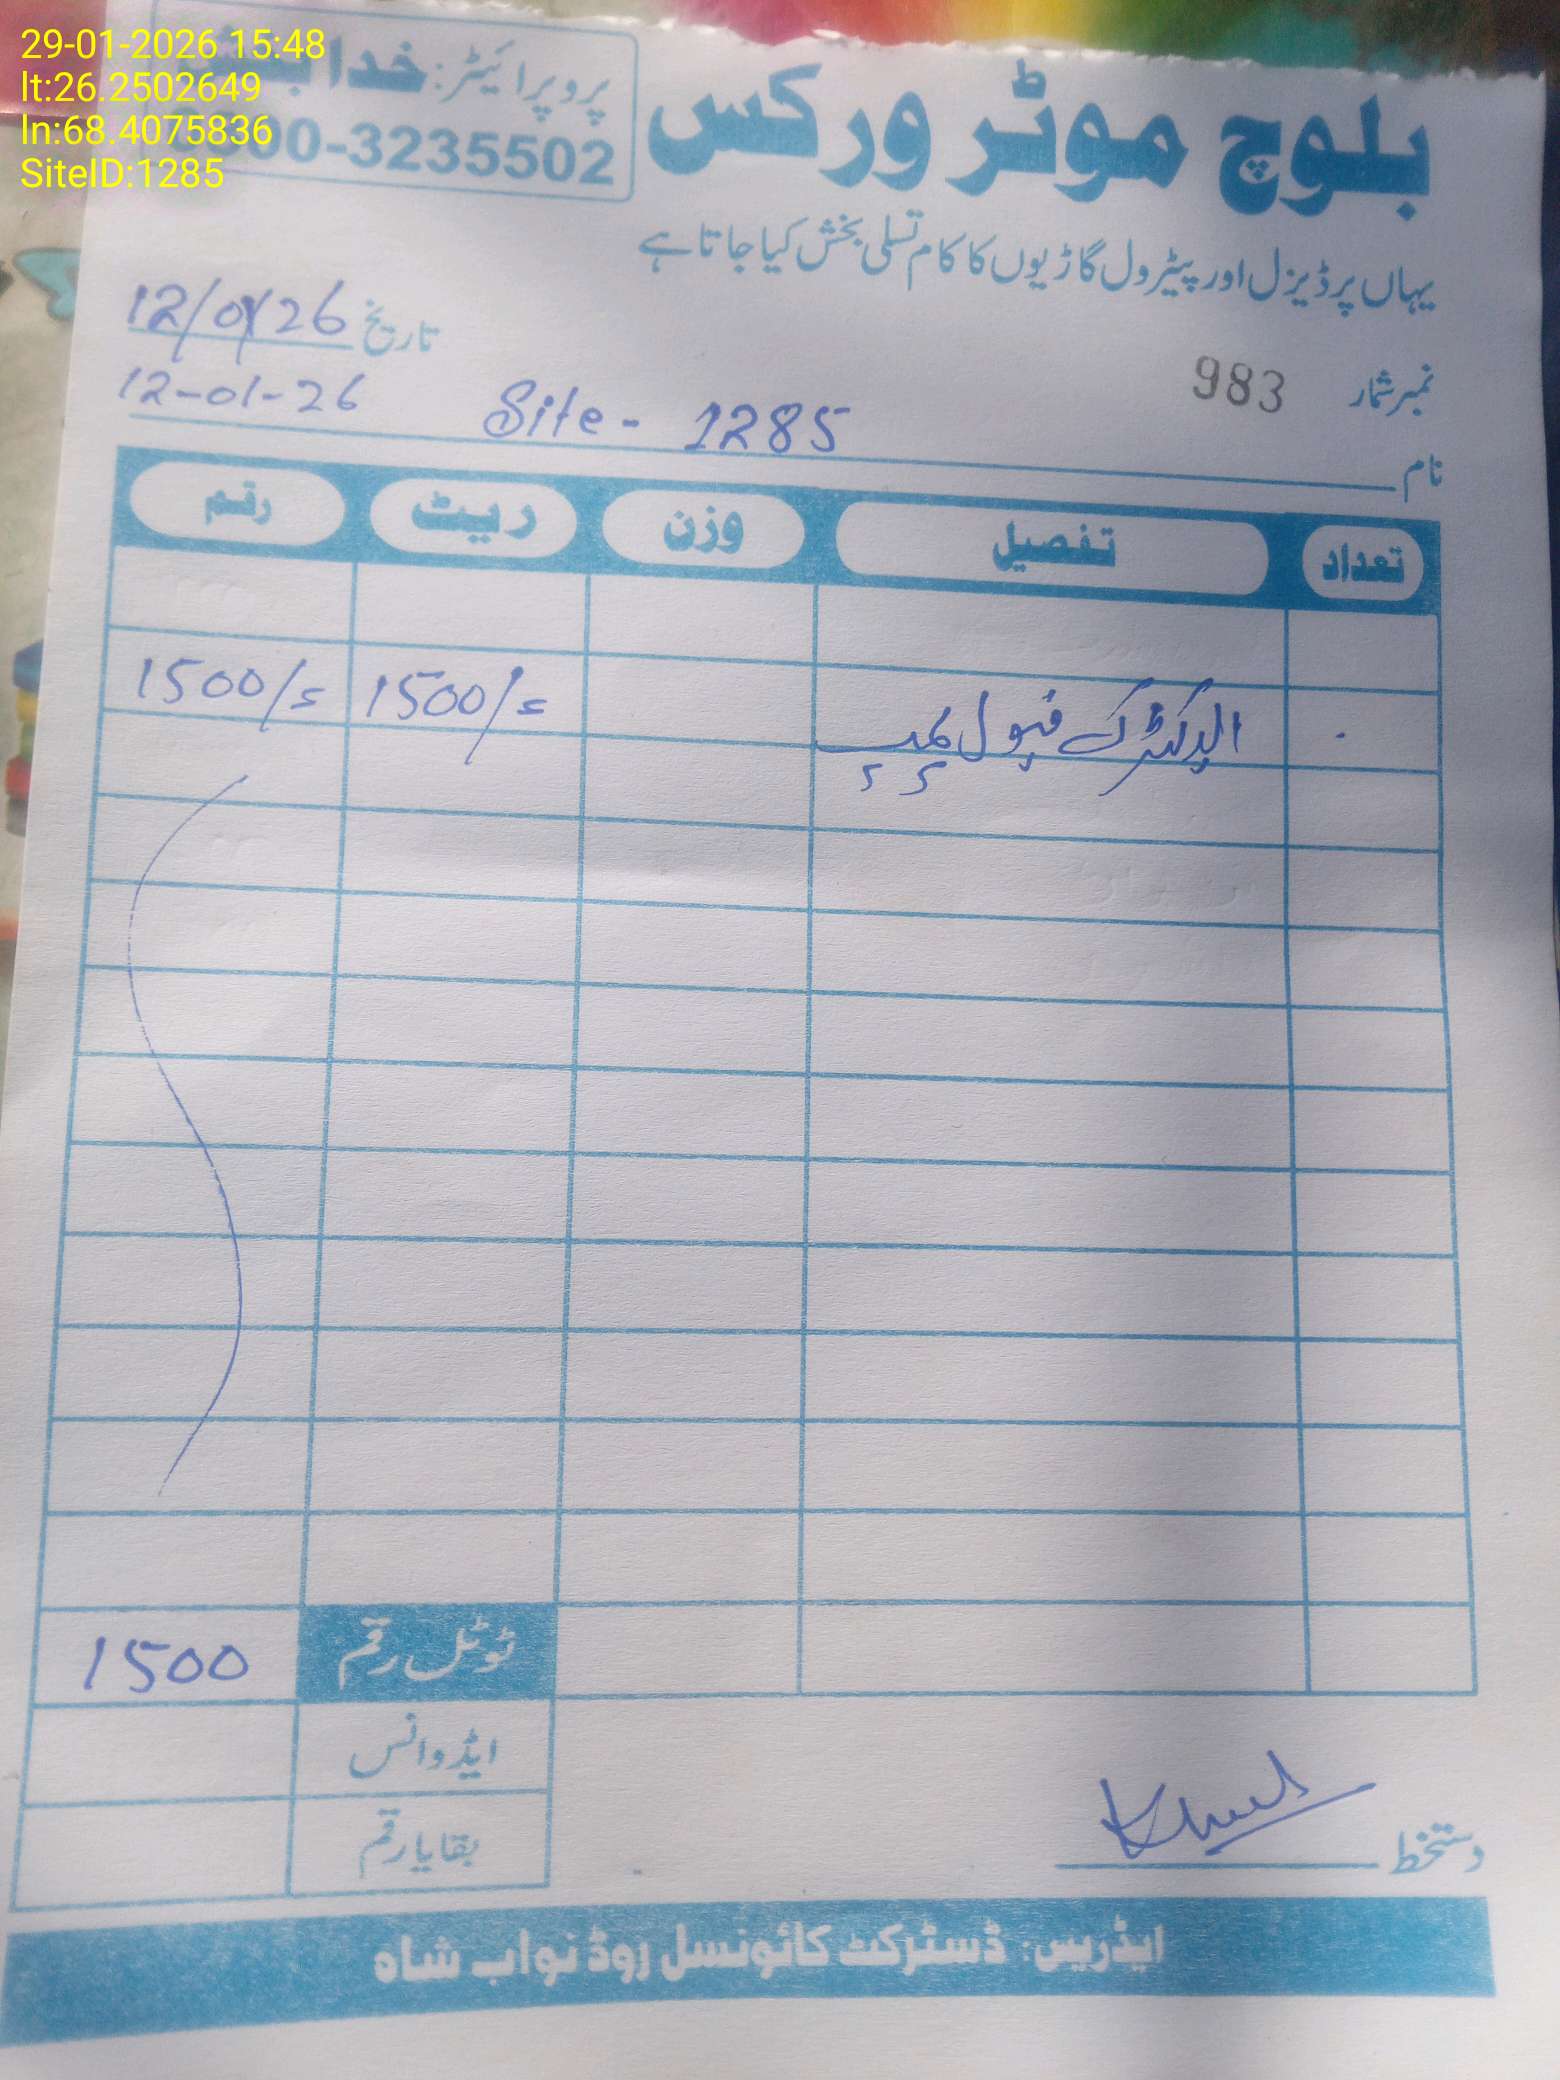 29-01-2026 15:48
lt:26.2502649
ln:68.4075836
SiteID:1285
بلوچ موٹر ورکس
پروپرائیٹر: خدا
00-3235502
یہاں پر ڈیزل اور پیٹرول گاڑیوں کا کام تسلی بخش کیا جاتا ہے
نمبر شمار 983
تاریخ 12/01/26
12-01-26
نام Site - 1285
تعداد تفصیل وزن ریٹ رقم
الیکٹرک فیول پمپ 1500/= 1500/=
ٹوٹل رقم 1500
ایڈوانس
بقایا رقم
دستخط
ایڈریس: ڈسٹرکٹ کائونسل روڈ نواب شاہ